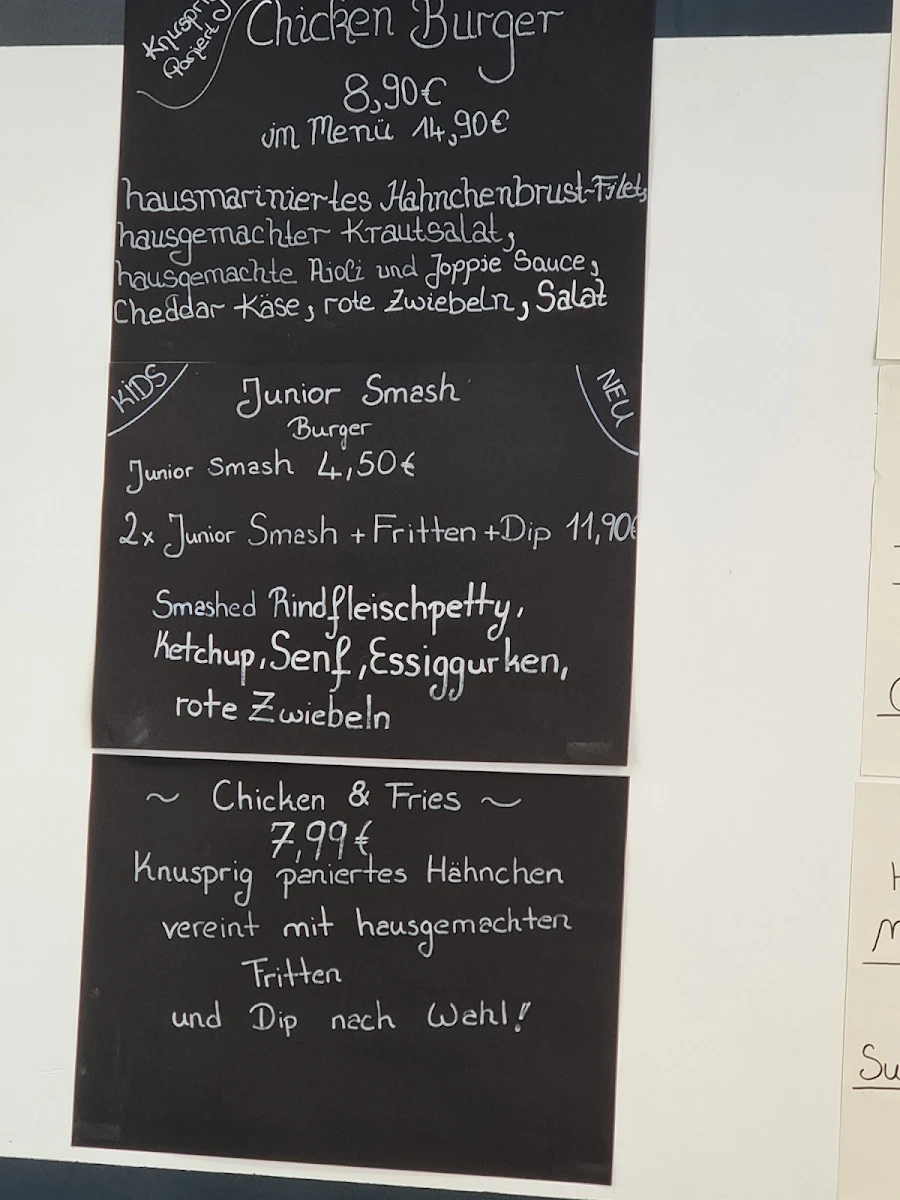 Knusprig
paniert
Chicken Burger
8,90€
im Menü 14,90€
hausmariniertes Hähnchenbrust-Filet,
hausgemachter Krautsalat,
hausgemachte Aioli und Joppie Sauce,
Cheddar Käse, rote Zwiebeln, Salat
KIDS
NEU
Junior Smash
Burger
Junior Smash 4,50€
2x Junior Smash + Fritten + Dip 11,90€
Smashed Rindfleischpetty,
Ketchup, Senf, Essiggurken,
rote Zwiebeln
~ Chicken & Fries ~
7,99€
Knusprig paniertes Hähnchen
vereint mit hausgemachten
Fritten
und Dip nach Wahl!
Su